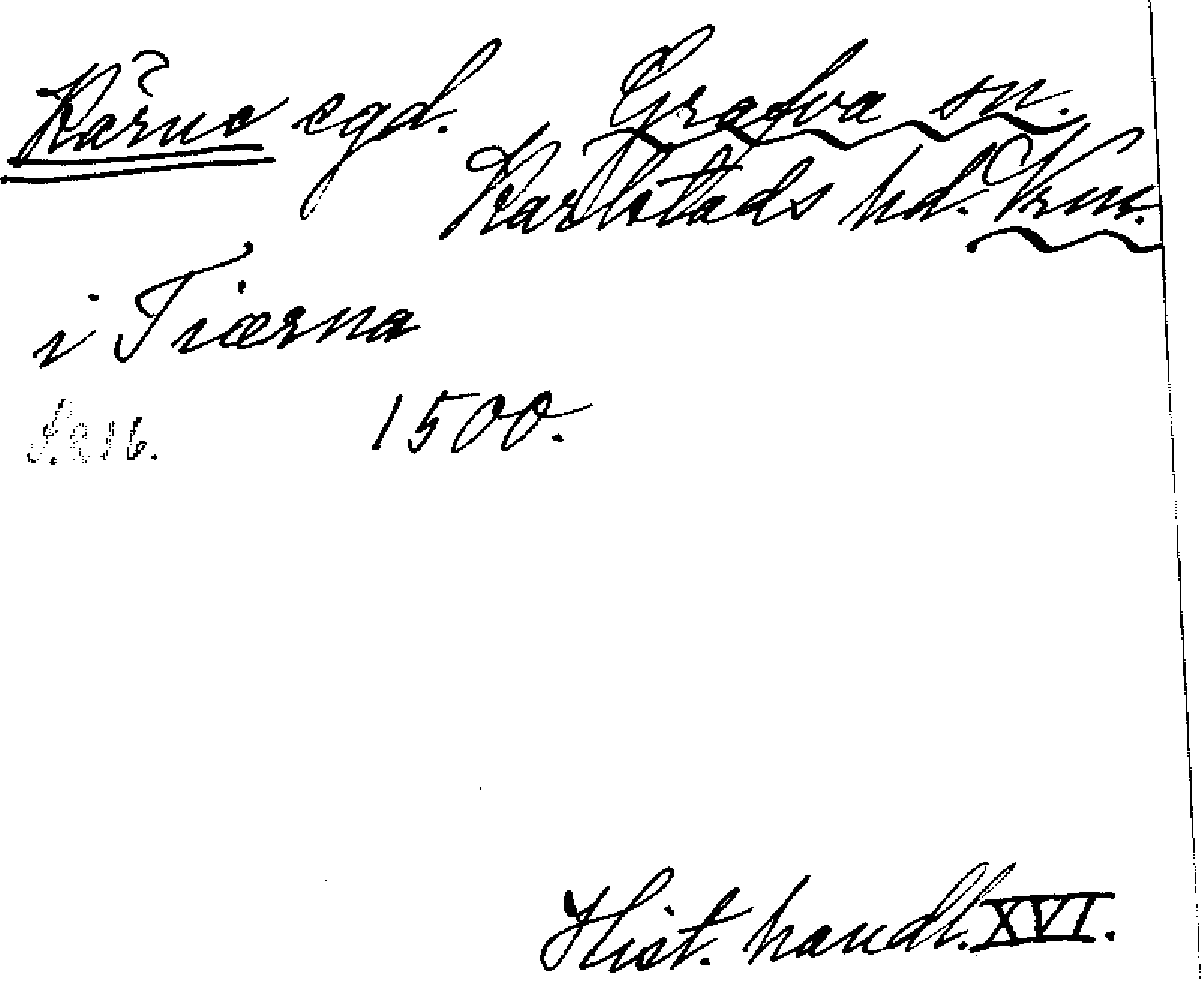 Kärne egd. Grafva sn.
Karlstads hd. Vrm.
i Tiærna
1500.
Hist. handl. XVI.